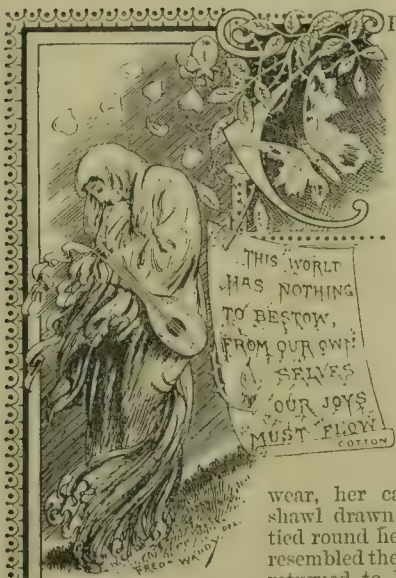 THIS WORLD
HAS NOTHING
TO BESTOW,
FROM OUR OWN
SELVES
OUR JOYS
MUST FLOW
COTTON
wear, her ca
shawl drawn
tied round he
resembled the
returned to